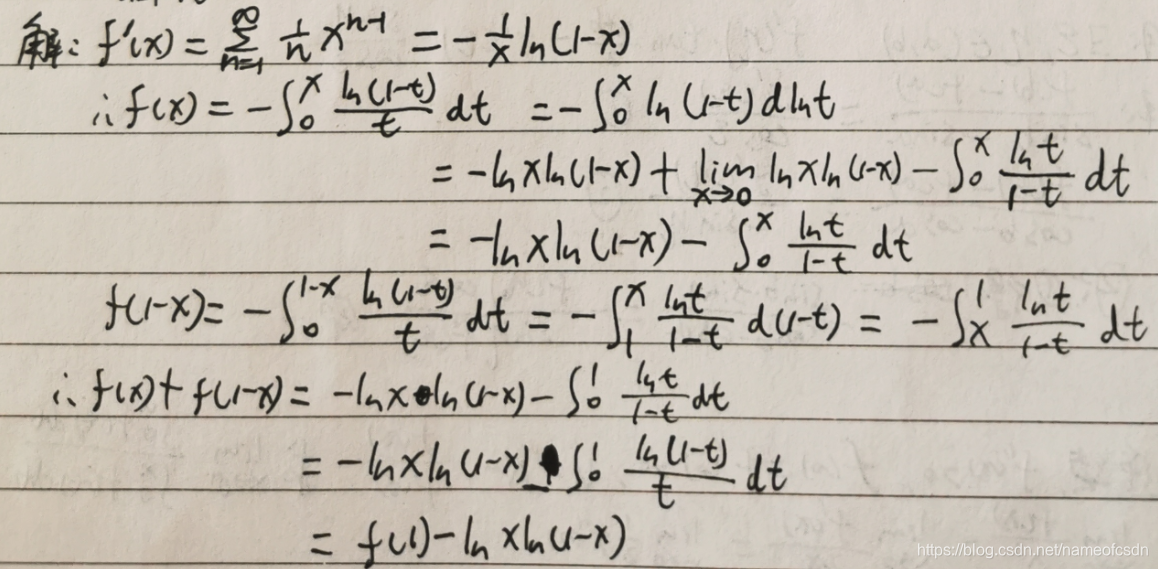 解: f'(x) = ∑_{n=1}^{∞} 1/n x^{n-1} = -1/x ln(1-x)
∴ f(x) = -∫_0^x ln(1-t)/t dt = -∫_0^x ln(1-t) dlnt
= -lnxln(1-x) + lim_{x→0} lnxln(1-x) - ∫_0^x lnt/(1-t) dt
= -lnxln(1-x) - ∫_0^x lnt/(1-t) dt
f(1-x) = -∫_0^{1-x} ln(1-t)/t dt = -∫_1^x lnt/(1-t) d(1-t) = -∫_x^1 lnt/(1-t) dt
∴ f(x) + f(1-x) = -lnx·ln(1-x) - ∫_0^1 lnt/(1-t) dt
= -lnxln(1-x) - ∫_0^1 ln(1-t)/t dt
= f(1) - lnxln(1-x)
https://blog.csdn.net/nameofcsdn